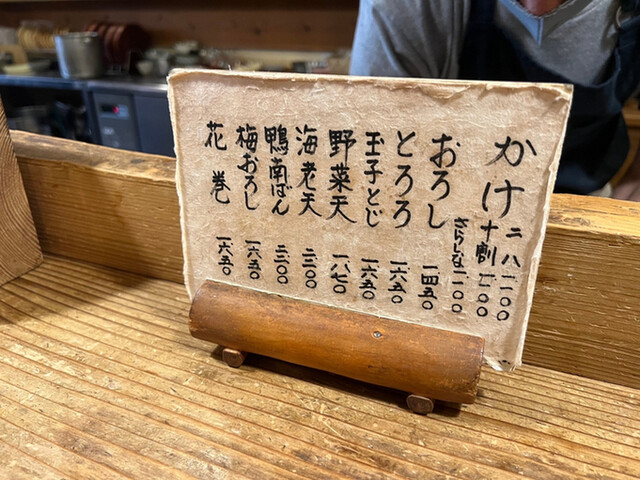 かけ 二八 一一〇〇
十割
さらしな
おろし 一四五〇
とろろ 一六五〇
玉子とじ 一六五〇
野菜天 一八七〇
海老天 二二〇〇
鴨南ばん 二二〇〇
梅おろし 一六五〇
花巻 一六五〇